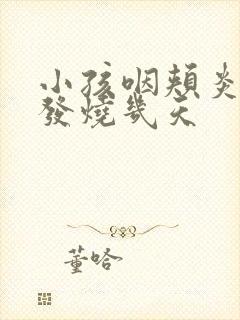 小孩咽頬炎
發燒幾天
董哈